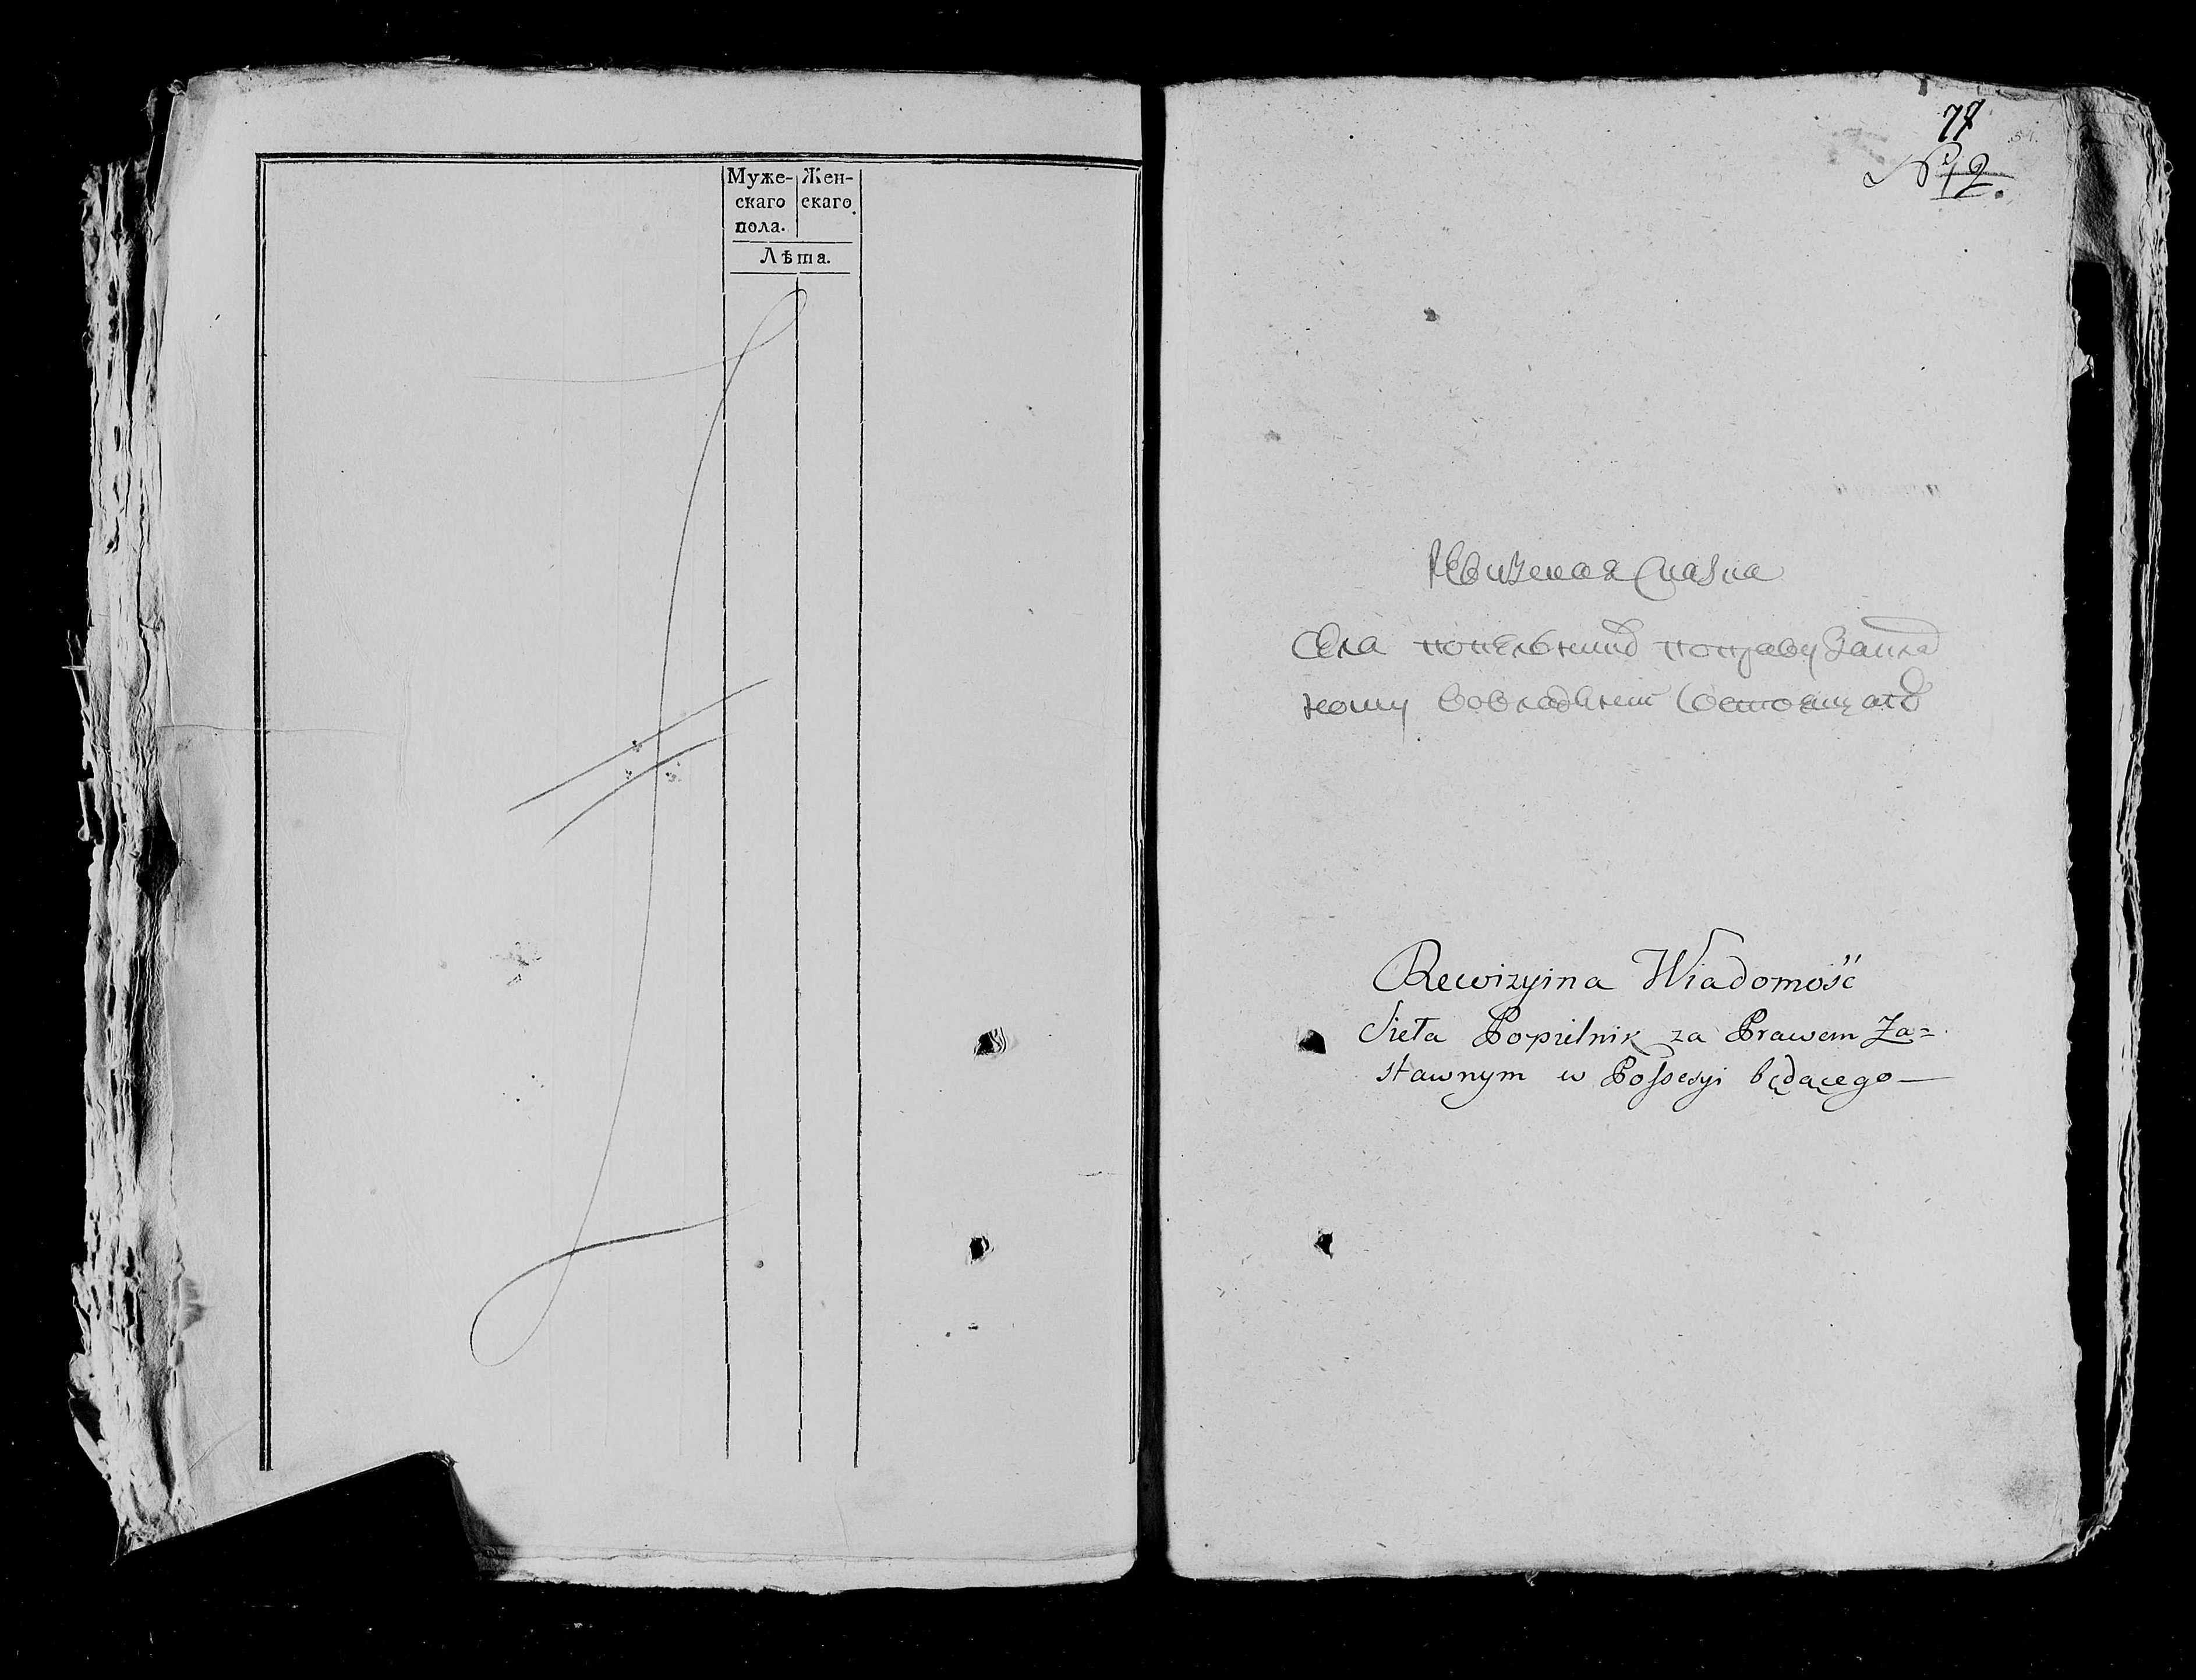 Муже- Жен-
скаго скаго
пола.
Лѣта.
77
№ 12.
Ревизская Сказка
Села попельникъ поправу Заклад
ному вовладѣнеи Состоящаго
Rewizyina Wiadomość
Sieła Popielnik za Prawem Za=
stawnym w Possesyi będącego